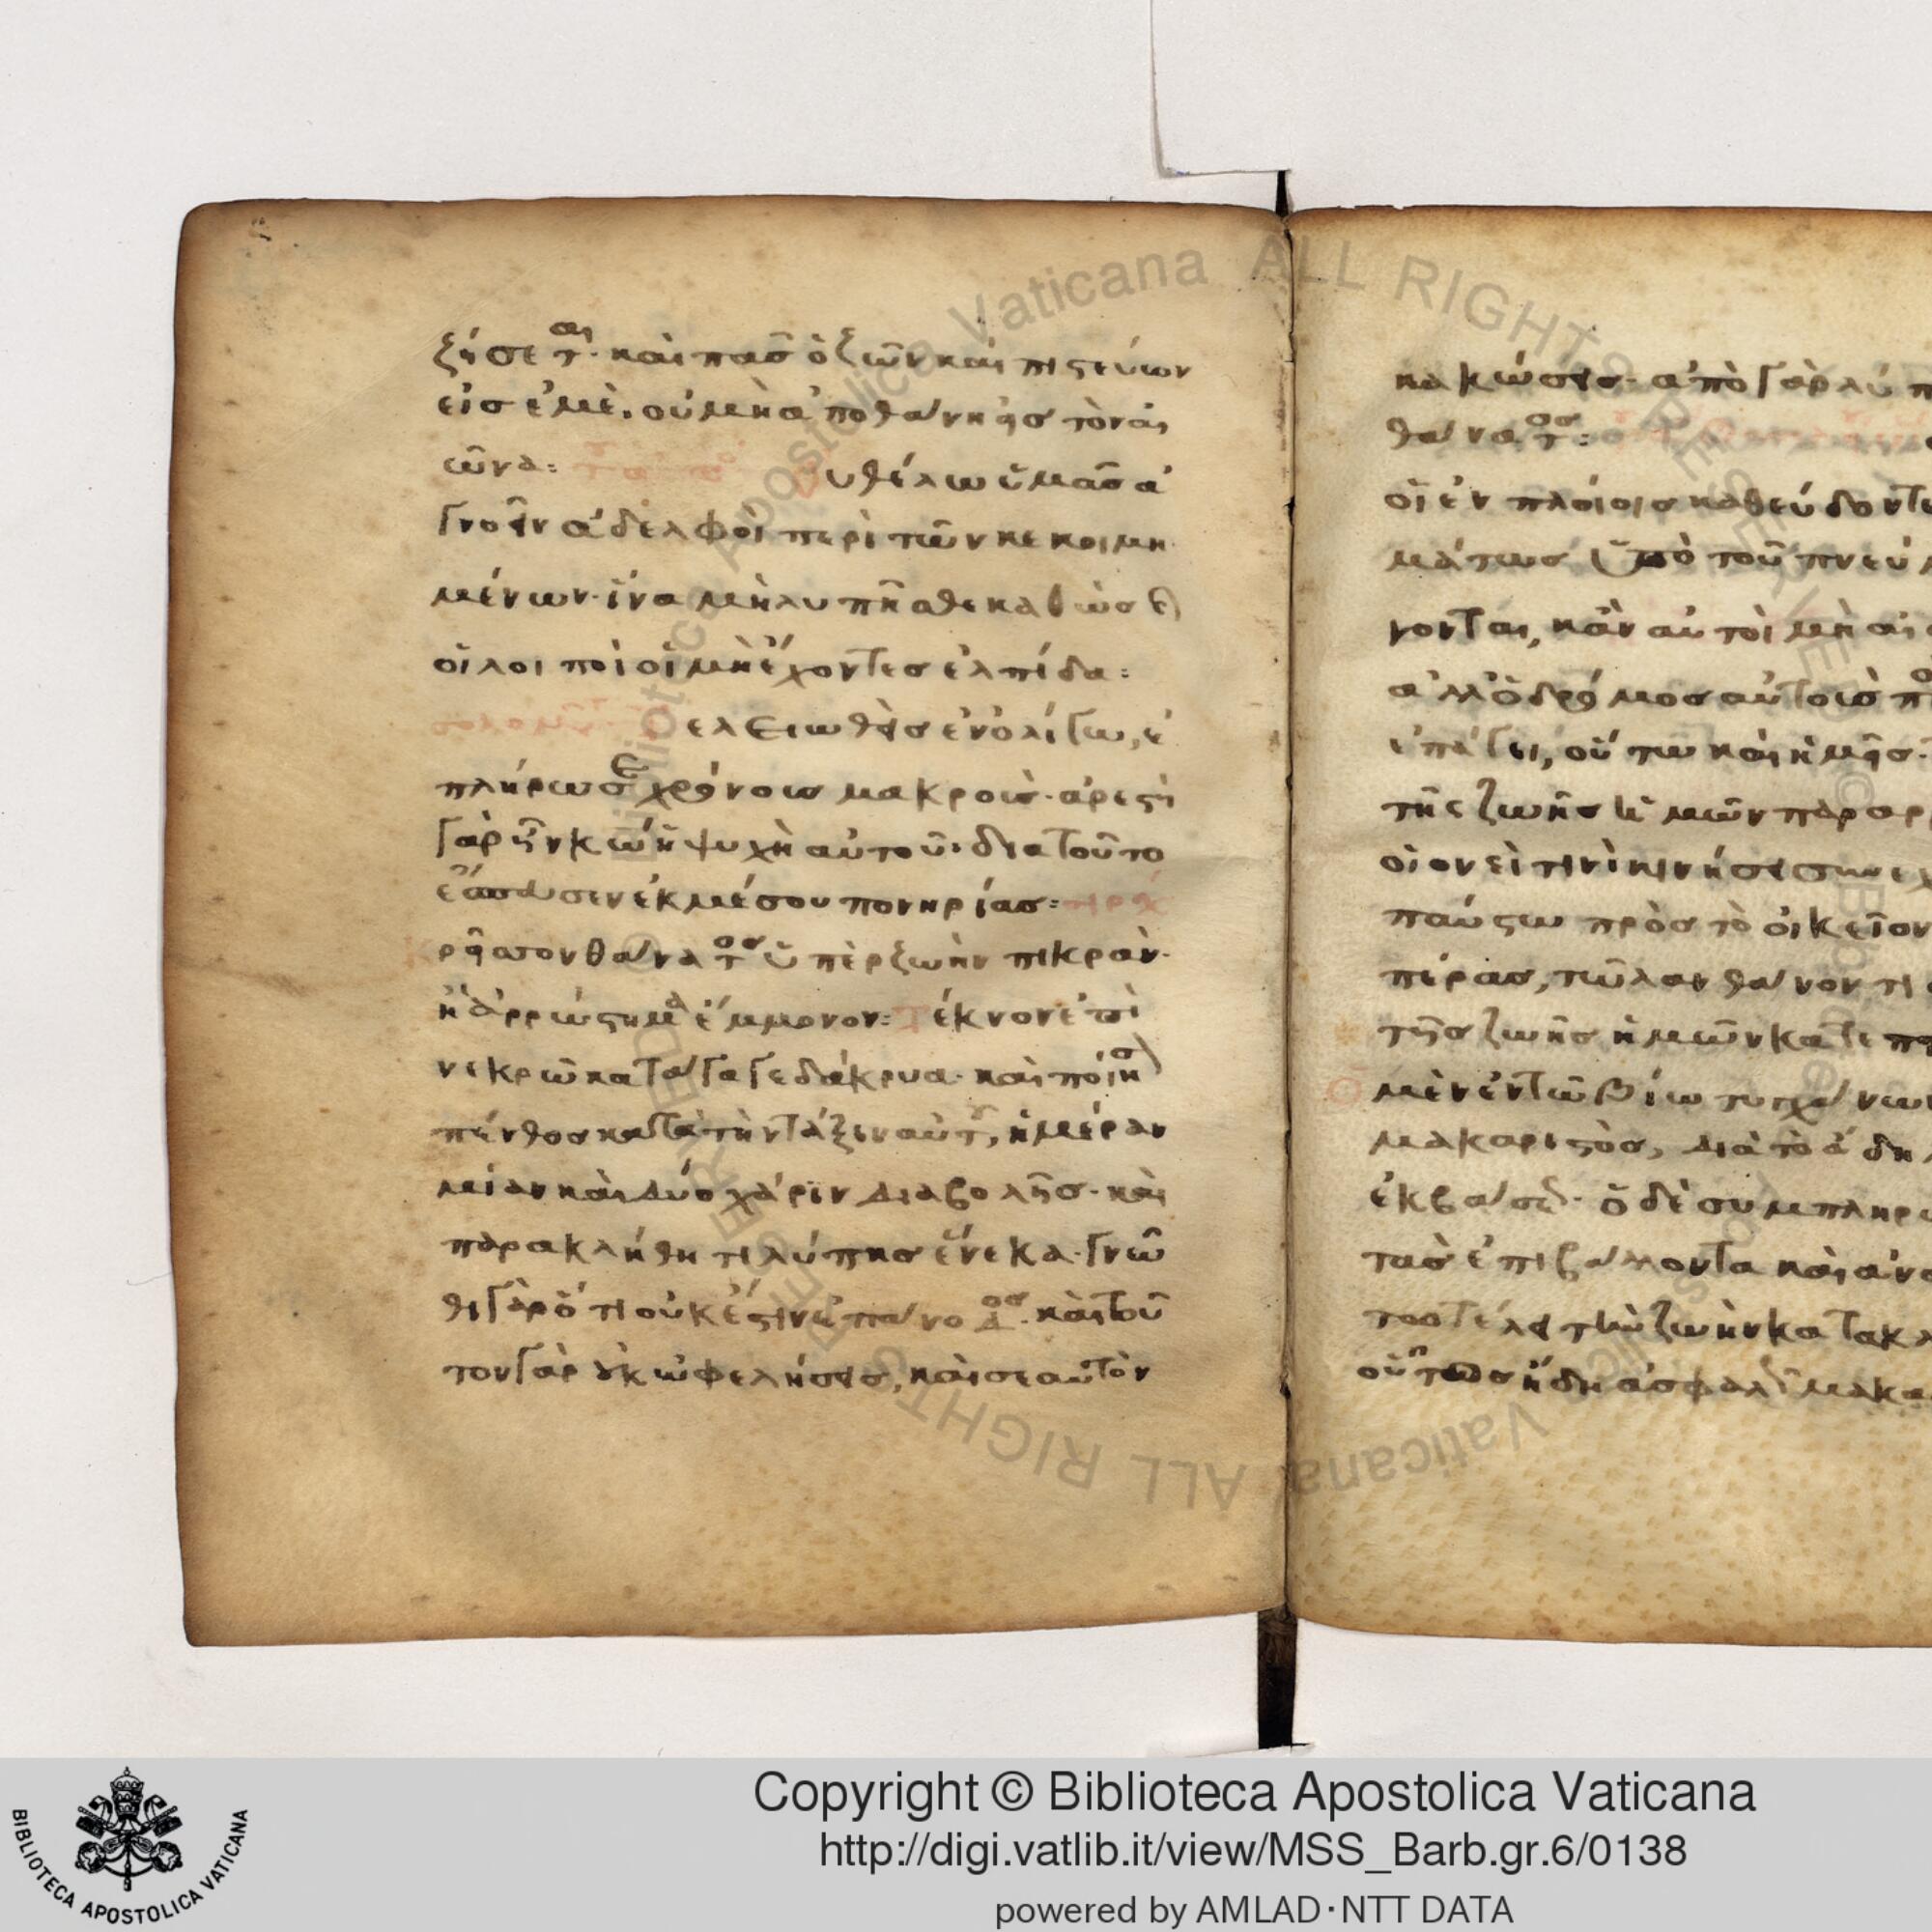 ζήσεται· καὶ πᾶσ ὁ ζῶν καὶ πιστεύων
εἰσ ἐμὲ. οὐ μὴ ἀποθάνη εἰσ τὸν αἰ
ῶνα:
υ θέλω ὑμᾶσ ἀ
γνοεῖν ἀδελφοὶ περὶ τῶν κεκοιμη
μένων· ἵνα μὴ λυπῆσθε καθὼσ καὶ
οἱ λοιποὶ οἱ μὴ ἔχοντεσ ἐλπίδα:
ελειωθεὶσ ἐν ὀλίγω, ἐ
πλήρωσε χρόνουσ μακρούσ· ἀρεστὴ
γὰρ ἦν κω ἡ ψυχὴ αὐτοῦ· διατοῦτο
ἔσπευσεν ἐκ μέσου πονηρίασ:
ρεῖσσον θάνατοσ ὑπὲρ ζωὴν πικρὰν·
ἢ ἀρρώστημα ἔμμονον: Τέκνον ἐπὶ
νεκρῶ κατάγαγε δάκρυα· καὶ ποίησ
πένθοσ κατὰ τὴν τάξιν αὐτοῦ, ἡμέραν
μίαν καὶ δύο χάριν διαβολῆσ· καὶ
παρακλήθητι λύπησ ἕνεκα· γνῶ
θι γὰρ ὅτι οὐκ ἔστιν ἐπάνοδοσ· καὶ τοῦ
τον γὰρ οὐκ ὠφελήσεισ, καὶ σεαυτὸν
κακώσεισ· ἀπὸ γὰρ λύπ
θάνατοσ:
οἱ ἐν πλοίοισ καθεύδοντε
μάτωσ ὑπὸ τοῦ πνεύμ
νονται, κἂν αὐτοὶ μὴ αἰ
ἀλλ' ὁ δρόμοσ αὐτοὺσ π
ἐπείγει, οὕτω καὶ ἡμεῖσ·
τῆς ζωῆσ ἡμῶν παραρ
οἱονεί τινι κινήσει συνεχ
παύστω πρὸσ τὸ οἰκεῖον
πέρασ, τῶ λανθάνοντι
τῆσ ζωῆσ ἡμῶν κατεπ
μὲν ἐν τῶ βίω τυγχάνων
μακαριστὸσ, διὰ τὸ ἄδη
ἐκβάσεωσ· ὁ δὲ συμπληρ
τασ ἐπιβάλλοντα καὶ ἀν
τῳ τέλει τὴν ζωὴν κατακλ
οὗτοσ ἤδη ἀσφαλῶσ μακα
BIBLIOTECA APOSTOLICA VATICANA
Copyright © Biblioteca Apostolica Vaticana
http://digi.vatlib.it/view/MSS_Barb.gr.6/0138
powered by AMLAD·NTT DATA